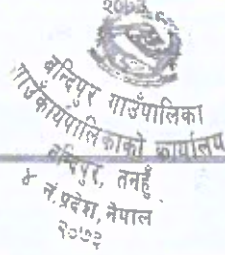 २०७३
बन्दिपुर गाउँपालिका
गाउँकार्यपालिकाको कार्यालय
बन्दिपुर, तनहुँ
४ नं.प्रदेश, नेपाल
२०७२